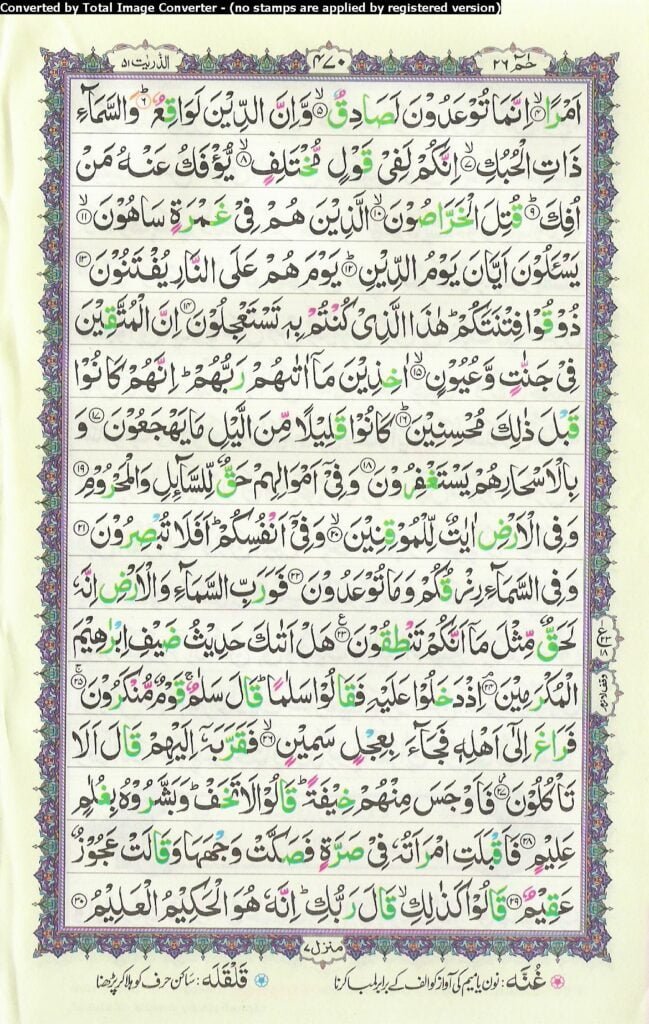 Converted by Total Image Converter - (no stamps are applied by registered version)
الذّٰریٰت ٥١
٤٧٠
حٰمٓ ٢٦
اَمْرًا ۙ‏﴿۴﴾ اِنَّمَا تُوْعَدُوْنَ لَصَادِقٌ ۙ‏﴿۵﴾ وَّاِنَّ الدِّيْنَ لَوَاقِعٌ ؕ‏﴿۶﴾ وَالسَّمَآءِ
ذَاتِ الْحُبُكِ ۙ‏﴿۷﴾ اِنَّكُمْ لَفِيْ قَوْلٍ مُّخْتَلِفٍ ۙ‏﴿۸﴾ يُّؤْفَكُ عَنْهُ مَنْ
اُفِكَ ؕ‏﴿۹﴾ قُتِلَ الْخَرّٰصُوْنَ ۙ‏﴿۱۰﴾ الَّذِيْنَ هُمْ فِيْ غَمْرَةٍ سَاهُوْنَ ۙ‏﴿۱۱﴾
يَسْـَٔلُوْنَ اَيَّانَ يَوْمُ الدِّيْنِ ؕ‏﴿۱۲﴾ يَوْمَ هُمْ عَلَى النَّارِ يُفْتَنُوْنَ ‏﴿۱۳﴾
ذُوْقُوْا فِتْنَتَكُمْ ؕ هٰذَا الَّذِيْ كُنْتُمْ بِهٖ تَسْتَعْجِلُوْنَ ‏﴿۱۴﴾ اِنَّ الْمُتَّقِيْنَ
فِيْ جَنّٰتٍ وَّعُيُوْنٍ ۙ‏﴿۱۵﴾ اٰخِذِيْنَ مَاۤ اٰتٰىهُمْ رَبُّهُمْ ؕ اِنَّهُمْ كَانُوْا
قَبْلَ ذٰلِكَ مُحْسِنِيْنَ ؕ‏﴿۱۶﴾ كَانُوْا قَلِيْلًا مِّنَ الَّيْلِ مَا يَهْجَعُوْنَ ‏﴿۱۷﴾ وَ
بِالْاَسْحَارِ هُمْ يَسْتَغْفِرُوْنَ ‏﴿۱۸﴾ وَفِيْۤ اَمْوَالِهِمْ حَقٌّ لِّلسَّآىِٕلِ وَالْمَحْرُوْمِ ‏﴿۱۹﴾
وَفِي الْاَرْضِ اٰيٰتٌ لِّلْمُوْقِنِيْنَ ۙ‏﴿۲۰﴾ وَفِيْۤ اَنْفُسِكُمْ ؕ اَفَلَا تُبْصِرُوْنَ ‏﴿۲۱﴾
وَفِي السَّمَآءِ رِزْقُكُمْ وَمَا تُوْعَدُوْنَ ‏﴿۲۲﴾ فَوَرَبِّ السَّمَآءِ وَالْاَرْضِ اِنَّهٗ
لَحَقٌّ مِّثْلَ مَاۤ اَنَّكُمْ تَنْطِقُوْنَ ‏﴿۲۳﴾ هَلْ اَتٰىكَ حَدِيْثُ ضَيْفِ اِبْرٰهِيْمَ
الْمُكْرَمِيْنَ ۘ‏﴿۲۴﴾ اِذْ دَخَلُوْا عَلَيْهِ فَقَالُوْا سَلٰمًا ؕ قَالَ سَلٰمٌ ۚ قَوْمٌ مُّنْكَرُوْنَ ۚ‏﴿۲۵﴾
فَرَاغَ اِلٰۤى اَهْلِهٖ فَجَآءَ بِعِجْلٍ سَمِيْنٍ ۙ‏﴿۲۶﴾ فَقَرَّبَهٗۤ اِلَيْهِمْ قَالَ اَلَا
تَاْكُلُوْنَ ‏﴿۲۷﴾ فَاَوْجَسَ مِنْهُمْ خِيْفَةً ؕ قَالُوْا لَا تَخَفْ ؕ وَبَشَّرُوْهُ بِغُلٰمٍ
عَلِيْمٍ ‏﴿۲۸﴾ فَاَقْبَلَتِ امْرَاَتُهٗ فِيْ صَرَّةٍ فَصَكَّتْ وَجْهَهَا وَقَالَتْ عَجُوْزٌ
عَقِيْمٌ ‏﴿۲۹﴾ قَالُوْا كَذٰلِكِ ۙ قَالَ رَبُّكِ ؕ اِنَّهٗ هُوَ الْحَكِيْمُ الْعَلِيْمُ ‏﴿۳۰﴾
منزل ٧
غُنَّه: نون یا میم کی آواز کو الف کے برابر لمبا کرنا
قَلْقَلَه: ساکن حرف کو ہلا کر پڑھنا